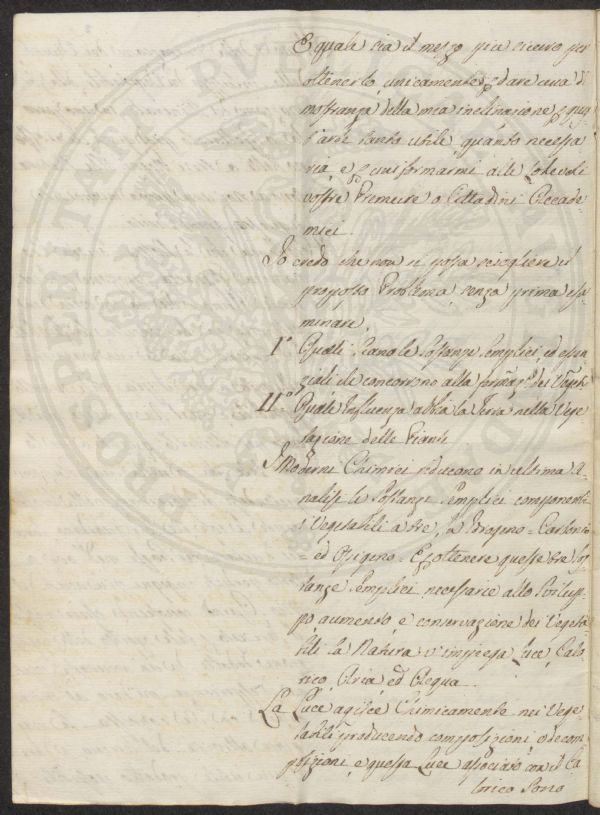 E quale sia il mezzo piu sicuro per
ottenerlo unicamente p dare una di
mostranza della mia inclinazione p quest
l'arte tanto utile, quanto necessa
ria, e p uniformarmi alle lodevoli
vostre Premure o Cittadini Accade
mici.
Io credo che non si possa sciogliere il
proposto Problema senza prima esa
minare.
I° Quali siano le Sostanze semplici, ed essen
ziali che concorrono alla formaz.e dei Veget.
II° Quale Influenza abbia la Terra nella Vege
tazione delle Piante
I Moderni Chimici riducono in ultima A
nalisi le Sostanze semplici componenti
i Vegetabili a tre, Idrogeno = Carbonio
= ed Osigeno = E p ottenere queste tre Sos
tanze semplici necessarie allo Svilup
po aumento, e conservazione dei Vegeta
bili la Natura v'impiega luce, Calo
rico, Aria ed Acqua.
La Luce agisce Chimicamente nei Vege
tabili producendo composizioni, o decom
posizioni, e questa Luce associata con il Ca
lorico sono
PROSPERITATI PUBLICAE